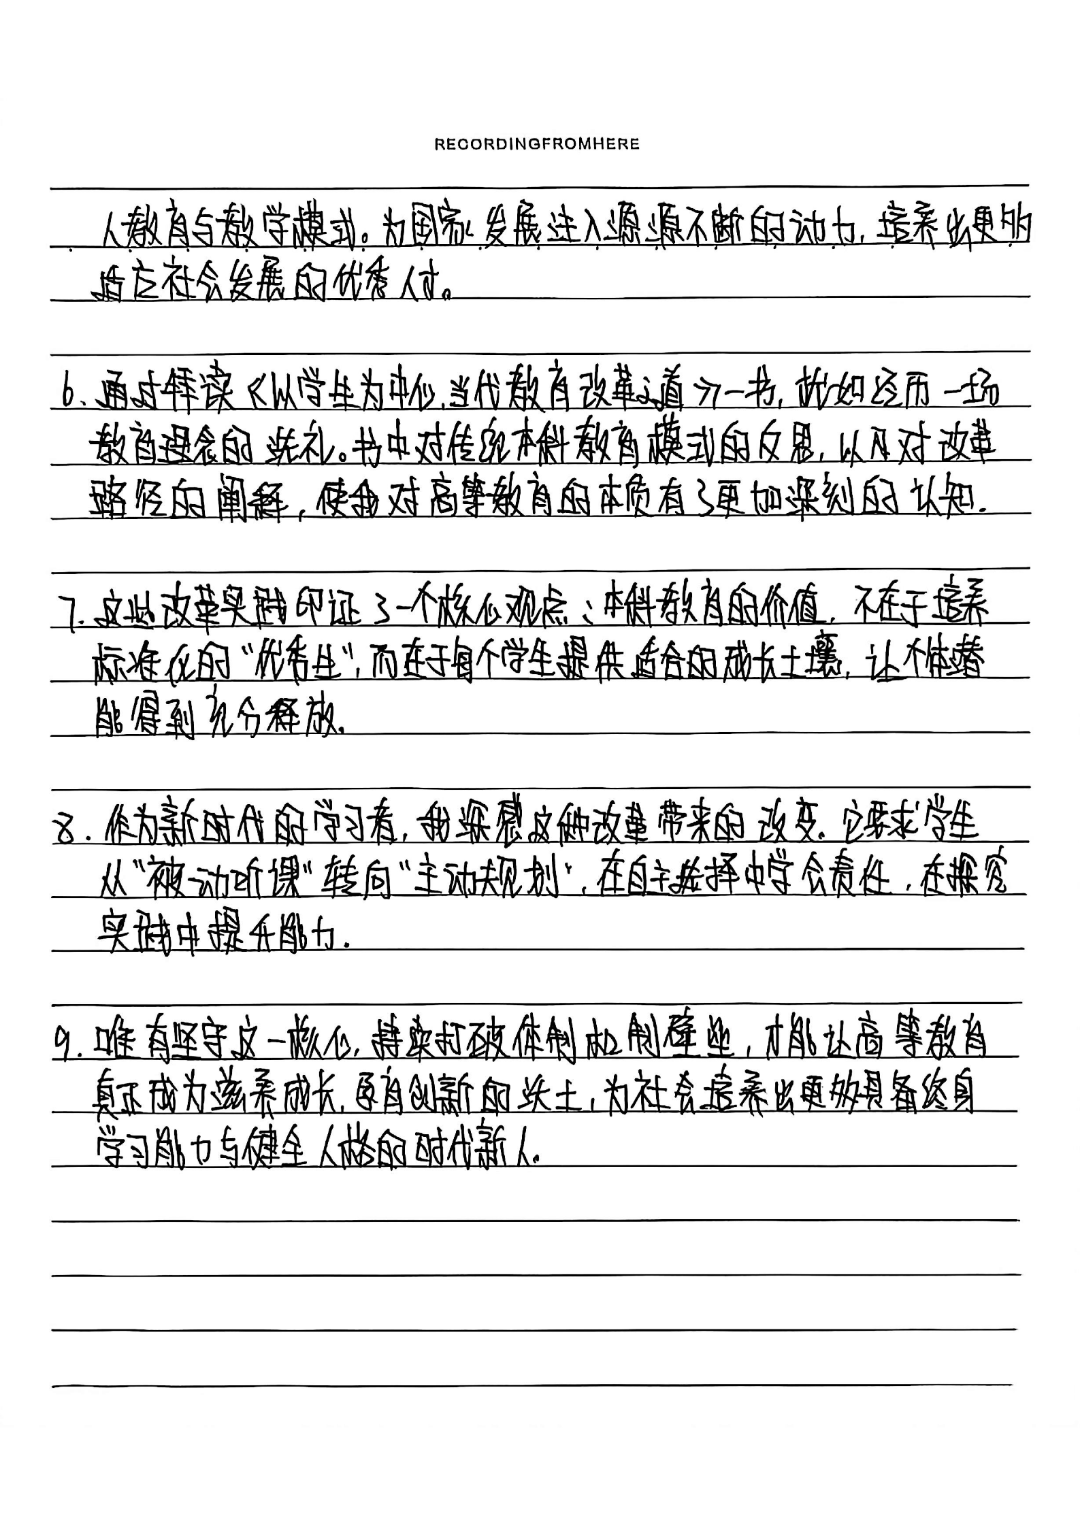 RECORDINGFROMHERE
人教育与教学模式。为国家发展注入源源不断的动力,培养出更多
适应社会发展的优秀人才。
6.通过释读《以学生为中心,当代教育改革之道》一书,犹如经历一场
教育理念的洗礼。书中对传统本科教育模式的反思,以及对改革
路径的阐释,使我对高等教育的本质有了更加深刻的认知.
7.这些改革实践印证了一个核心观点:本科教育的价值,不在于培养
标准化的“优秀生”,而在于每个学生提供适合的成长土壤,让个体潜
能得到充分释放.
8.作为新时代的学习者,我深感这种改革带来的改变.它要求学生
从“被动听课”转向“主动规划”,在自主选择中学会责任,在探究
实践中提升能力.
9.唯有坚守这一核心,持续打破体制机制壁垒,才能让高等教育
真正成为滋养成长,孕育创新的沃土,为社会培养出更多具备终身
学习能力与健全人格的时代新人.